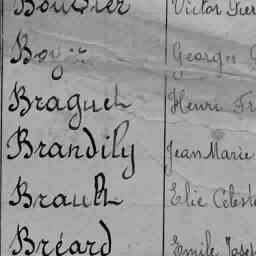 Bouvier Victor
Georges
Braguet Henri
Brandily Jean Marie
Brault Elie Céleste
Bréard Emile